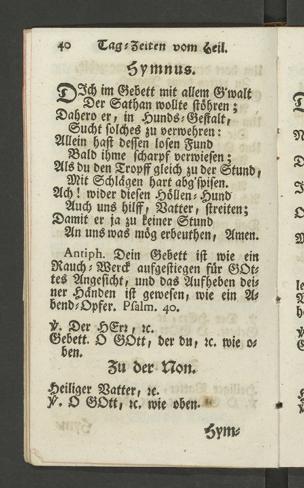 40 Tag-Zeiten vom Heil.
Hymnus.
DIch im Gebett mit allem G'walt
Der Sathan wollte stöhren;
Dahero er, in Hunds-Gestalt,
Sucht solches zu verwehren:
Allein hast dessen losen Fund
Bald ihme scharpf verwiesen;
Als du den Tropff gleich zu der Stund,
Mit Schlägen hart abg'spisen.
Ach! wider diesen Höllen-Hund
Auch uns hilff, Vatter, streiten;
Damit er ja zu keiner Stund
An uns was mög erbeuthen, Amen.
Antiph. Dein Gebett ist wie ein
Rauch-Werck aufgestiegen für GOt-
tes Angesicht, und das Aufheben dei-
ner Händen ist gewesen, wie ein A-
bend-Opfer. Psalm. 40.
℣. Der HErr, ꝛc.
Gebett. O GOtt, der du, ꝛc. wie o-
ben.
Zu der Non.
Heiliger Vatter, ꝛc.
℣. O GOtt, ꝛc. wie oben.
Hym-